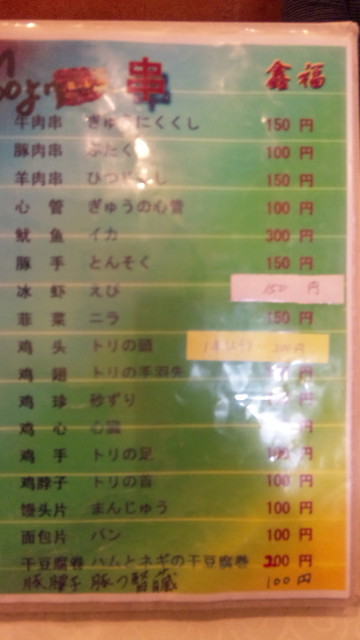 串 鑫福
牛肉串 ぎゅうにくくし 150 円
豚肉串 ぶたく 100 円
羊肉串 ひつじ し 150 円
心管 ぎゅうの心管 100 円
鱿鱼 イカ 300 円
豚手 とんそく 150 円
冰虾 えび 150 円
韮菜 ニラ 150 円
鸡头 トリの頭 200円
鸡翅 トリの手羽先 円
鸡珍 砂ずり 円
鸡心 心臓 円
鸡手 トリの足 100 円
鸡脖子 トリの首 100 円
馒头片 まんじゅう 100 円
面包片 パン 100 円
干豆腐卷 ハムとネギの干豆腐巻 200 円
豚の腎臓 100円